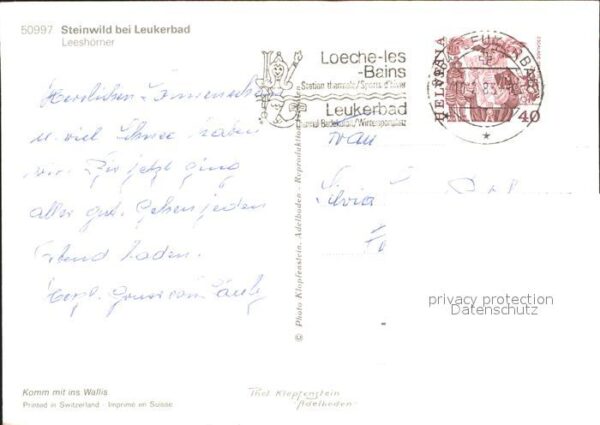 50997 Steinwild bei Leukerbad
Leeshörner
Loeche-les
-Bains
Station thermale/Sports d'hiver
Leukerbad
Thermal-Badekurort/Wintersportplatz
HELVETIA
40
Herrlichen Sonnenschein
u. viel Schnee haben
wir. Bis jetzt ging
alles gut. Gehen jeden
Abend baden.
Herzl. Gruss
Frau
Silvia
© Photo Klopfenstein, Adelboden - Reproduktion
privacy protection
Datenschutz
Komm mit ins Wallis
Printed in Switzerland - Imprimé en Suisse
Phot. Klopfenstein
Adelboden